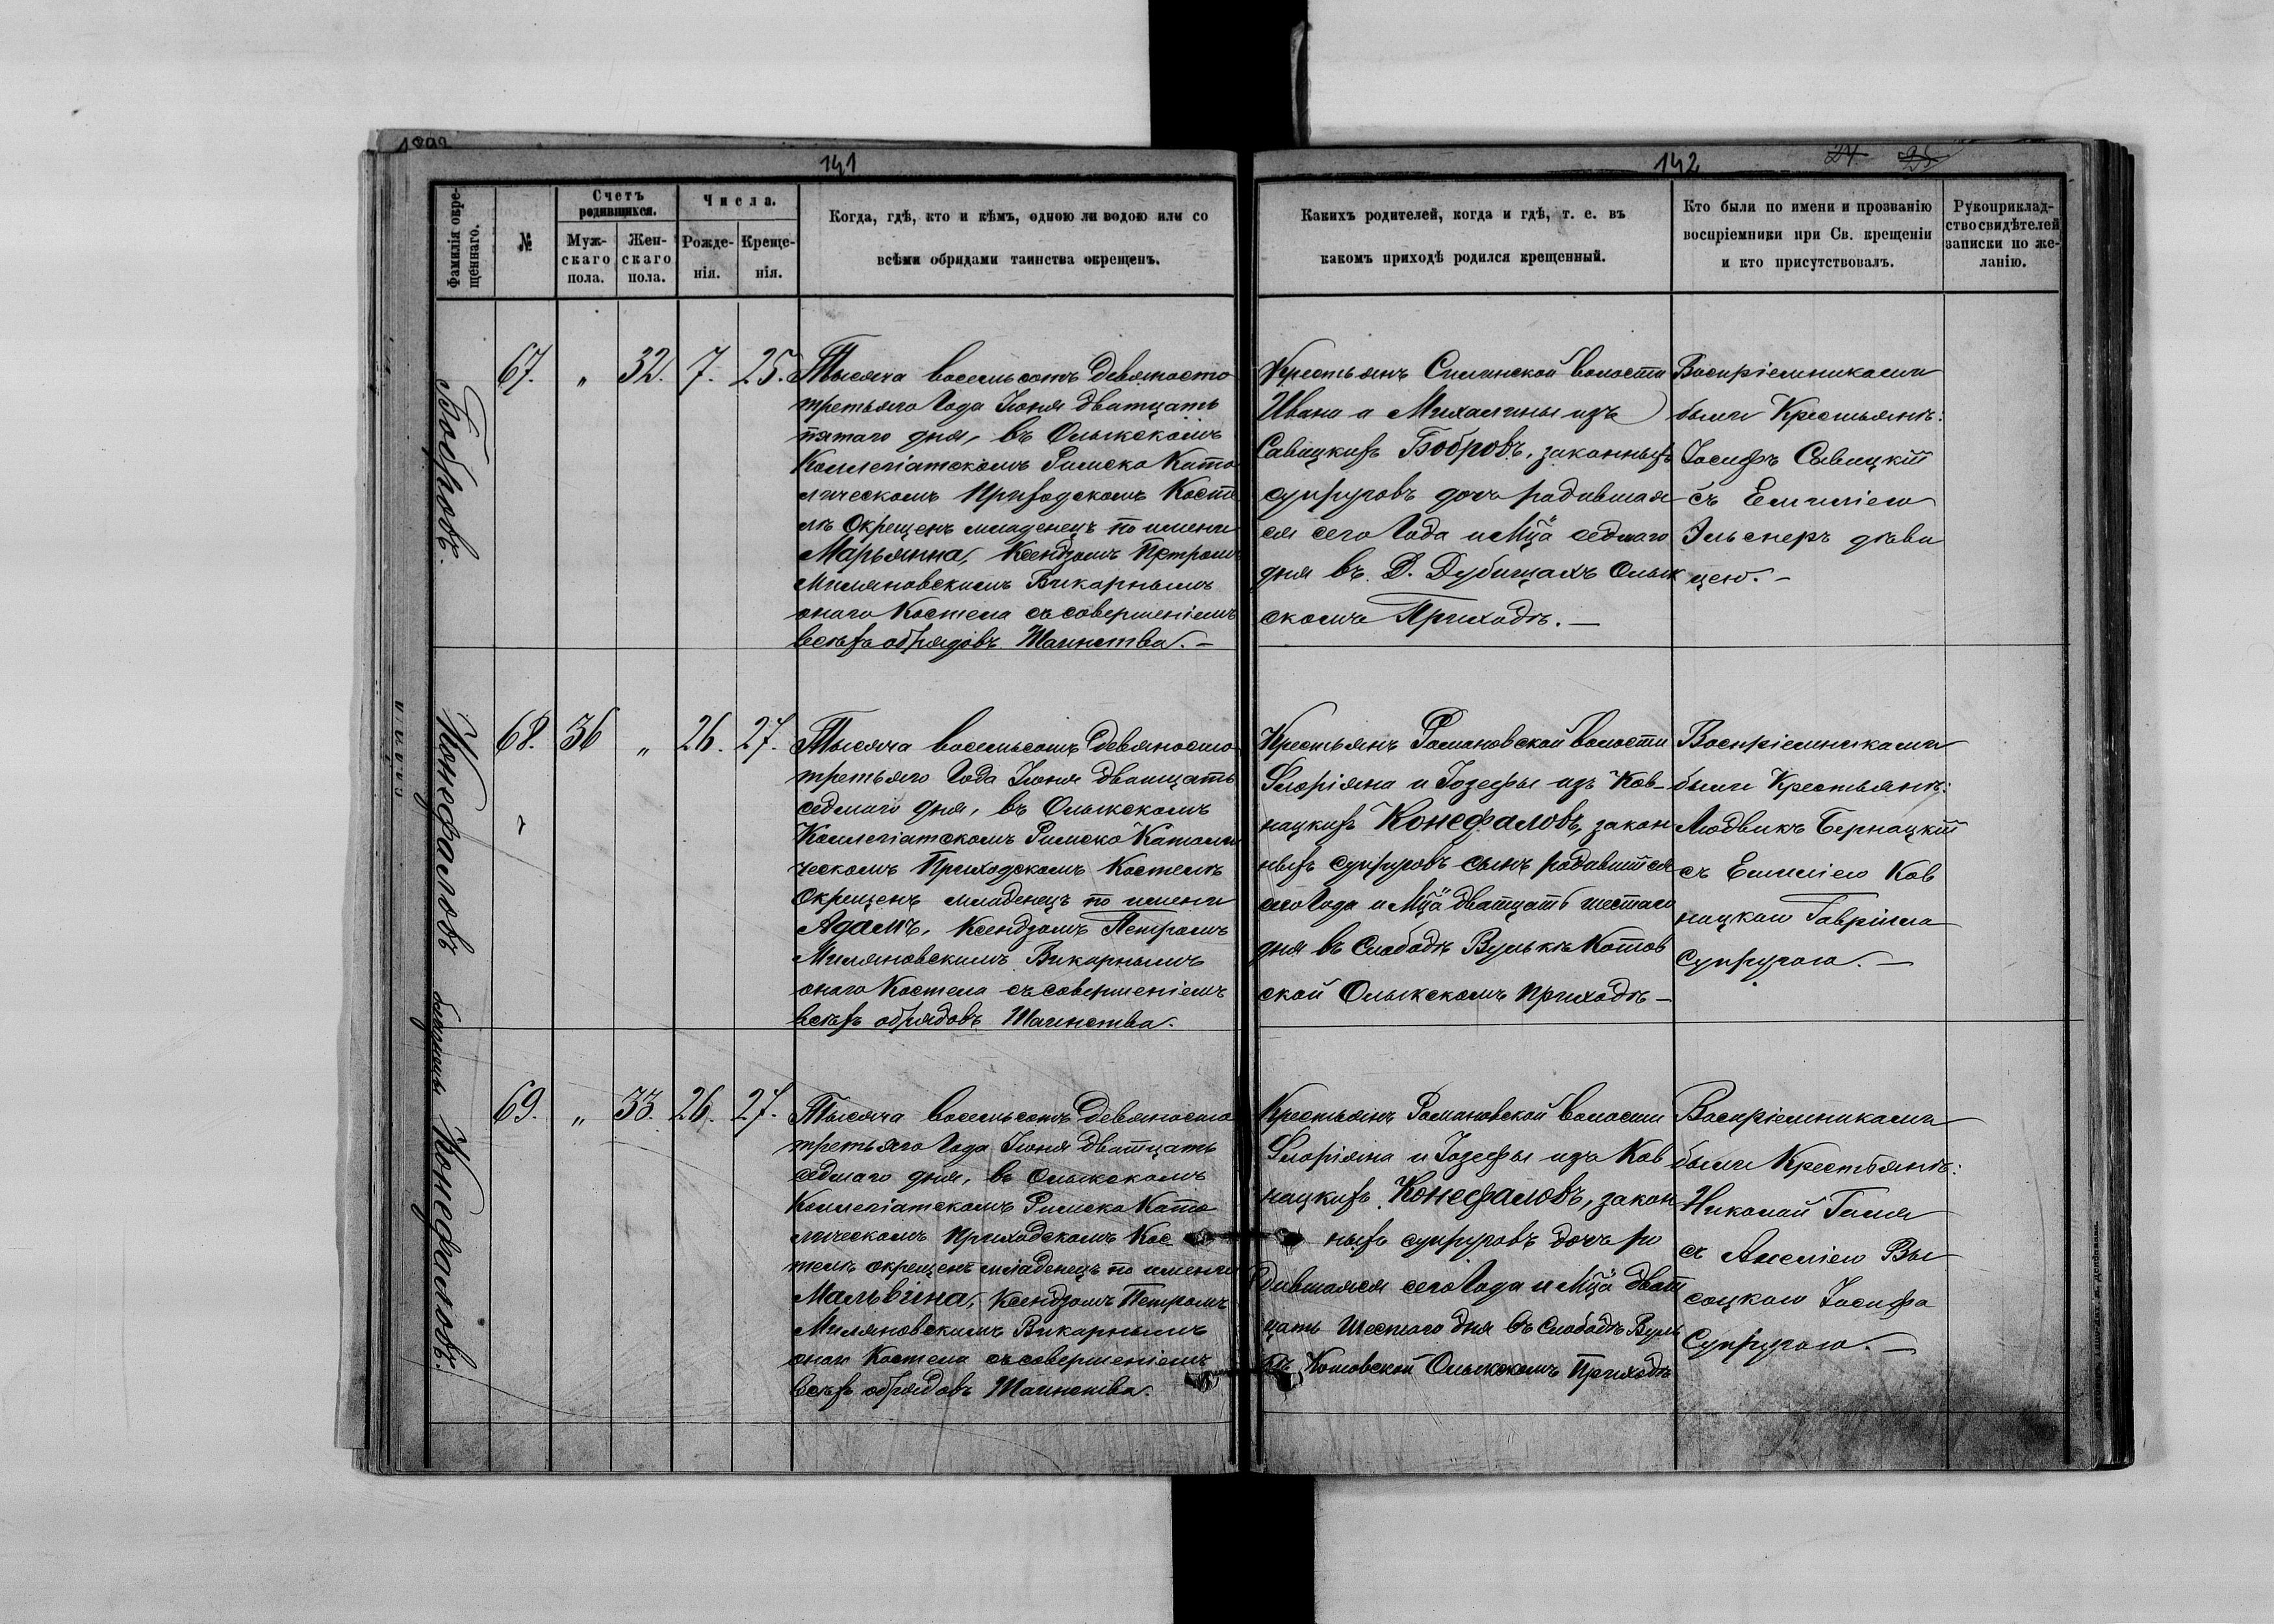 1893
141
142
24. 25
Фамилія окре-
щеннаго.
№
Счетъ
родившихся.
Муж-
скаго
пола.
Жен-
скаго
пола.
Числа.
Рожде-
нія.
Креще-
нія.
Когда, гдѣ, кто и кѣмъ, одною ли водою или со
всѣми обрядами таинства окрещенъ.
Какихъ родителей, когда и гдѣ, т. е. въ
какомъ приходѣ родился крещенный.
Кто были по имени и прозванію
воспріемники при Св. крещеніи
и кто присутствовалъ.
Рукоприклад-
ство свидѣтелей
записки по же-
ланію.
Бобровъ.
67. " 32. 7. 25.
Тысяча восемьсотъ девяносто
третьяго Года Іюня дватцать
пятаго дня, въ Олыкскомъ
Коллегіатскомъ Римско Като
лическомъ Приходскомъ Косте
лѣ Окрещенъ младенецъ по имени
Марьянна, Ксендзомъ Петромъ
Миляновскимъ Викарнымъ
онаго Костела съ совершеніемъ
всѣхъ обрядовъ Таинства. –
Крестьянъ Силинской волости
Ивана и Михалины изъ
Савицкихъ Бобровъ, законныхъ
супруговъ дочь родившая
ся сего Года и Мца седмаго
дня въ Д. Дубищахъ Олык
скомъ Приходѣ. –
Воспріемниками
были Крестьянѣ:
Іосифъ Савицкій
съ Емиліею
Эльснеръ дѣви
цею. –
Конефаловъ
68. 36 " 26. 27.
Тысяча восемьсотъ девяносто
третьяго Года Іюня дватцать
седмаго дня, въ Олыкскомъ
Коллегіатскомъ Римско Католи
ческомъ Приходскомъ Костелѣ
Окрещенъ младенецъ по имени
Адамъ, Ксендзомъ Петромъ
Миляновскимъ Викарнымъ
онаго Костела съ совершеніемъ
всѣхъ обрядовъ Таинства.
Крестьянъ Романовской волости
Флоріяна и Іозефы изъ Ков-
нацкихъ Конефаловъ, закон
ныхъ супруговъ сынъ родавшійся
сего Года и Мца дватцать шестаго
дня въ Слободѣ Вулькѣ Котов
ской Олыкскомъ Приходѣ –
Воспріемниками
были Крестьянѣ:
Людвикъ Бернацкій
съ Емиліею Ков
нацкою Гавріила
Супругою. –
близнецы Конефаловъ.
69. " 33. 26. 27.
Тысяча восемьсотъ девяносто
третьяго Года Іюня дватцать
седмаго дня, въ Олыкскомъ
Коллегіатскомъ Римско Като
лическомъ Приходскомъ Кос
телѣ окрещенъ младенецъ по имени
Мальвина, Ксендзомъ Петромъ
Миляновскимъ Викарнымъ
онаго Костела съ совершеніемъ
всѣхъ обрядовъ Таинства.
Крестьянъ Романовской волости
Флоріяна и Іозефы изъ Ков
нацкихъ Конефаловъ, закон
ныхъ супруговъ дочь ро
дившаяся сего Года и Мца дват
цать шестаго дня въ Слободѣ Вуль
кѣ Котовской Олыкскомъ Приходѣ
Воспріемниками
были Крестьянѣ:
Николай
съ Анеліею Вы
соцкою Іосифа
Супругою. –